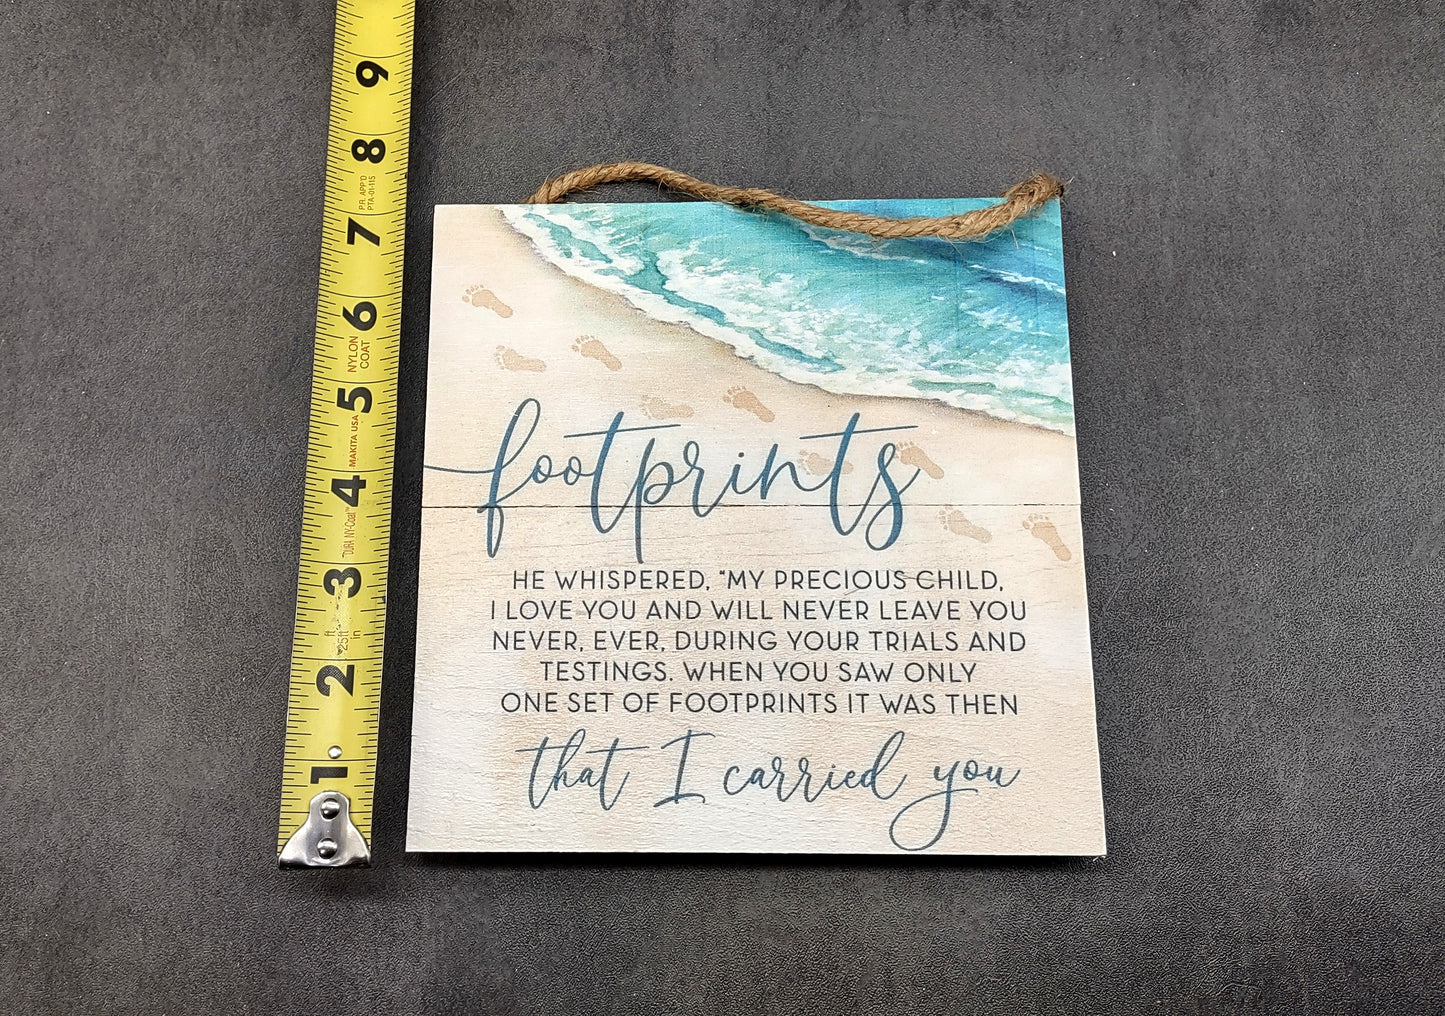 footprints
HE WHISPERED, "MY PRECIOUS CHILD,
I LOVE YOU AND WILL NEVER LEAVE YOU
NEVER, EVER, DURING YOUR TRIALS AND
TESTINGS. WHEN YOU SAW ONLY
ONE SET OF FOOTPRINTS IT WAS THEN
that I carried you
1
2
ft
25ft
in
3
"DURA NY-Coat™
4
MAKITA USA
5
NYLON
COAT
6
7
P.R. APP'D
PTA-01-115
8
9